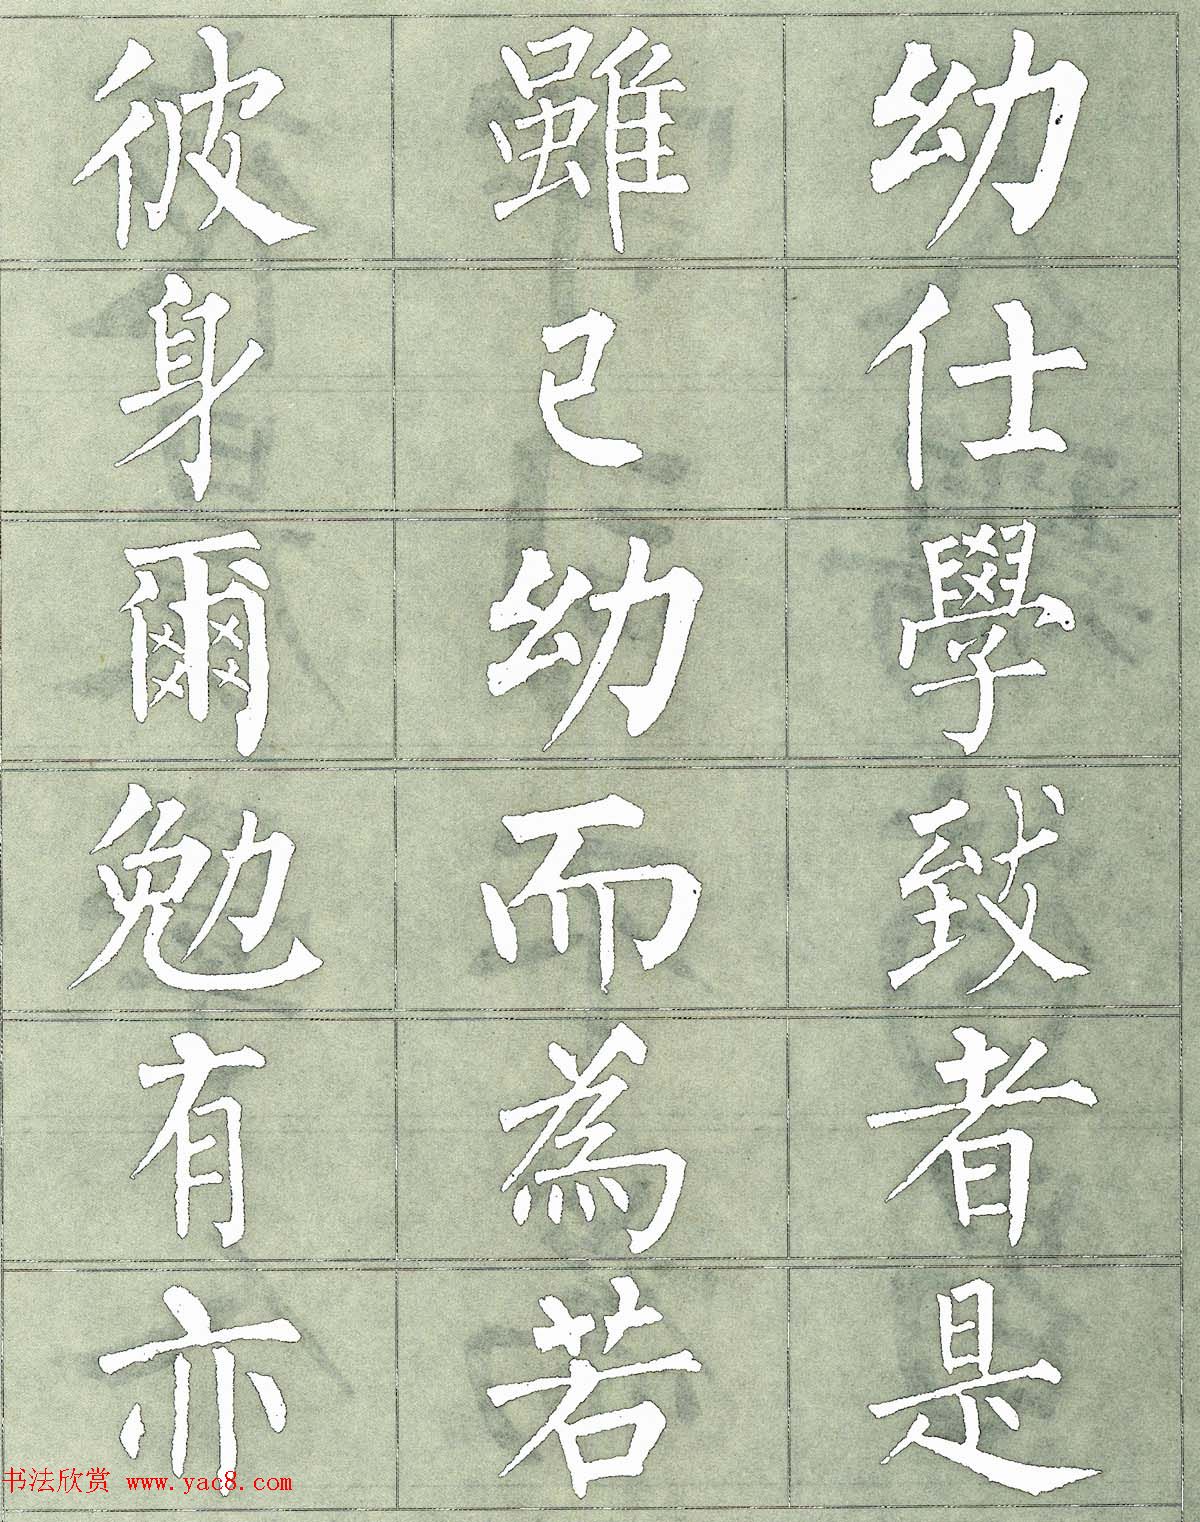 幼仕學致者是
雖已幼而為若
彼身爾勉有亦
书法欣赏 www.yac8.com